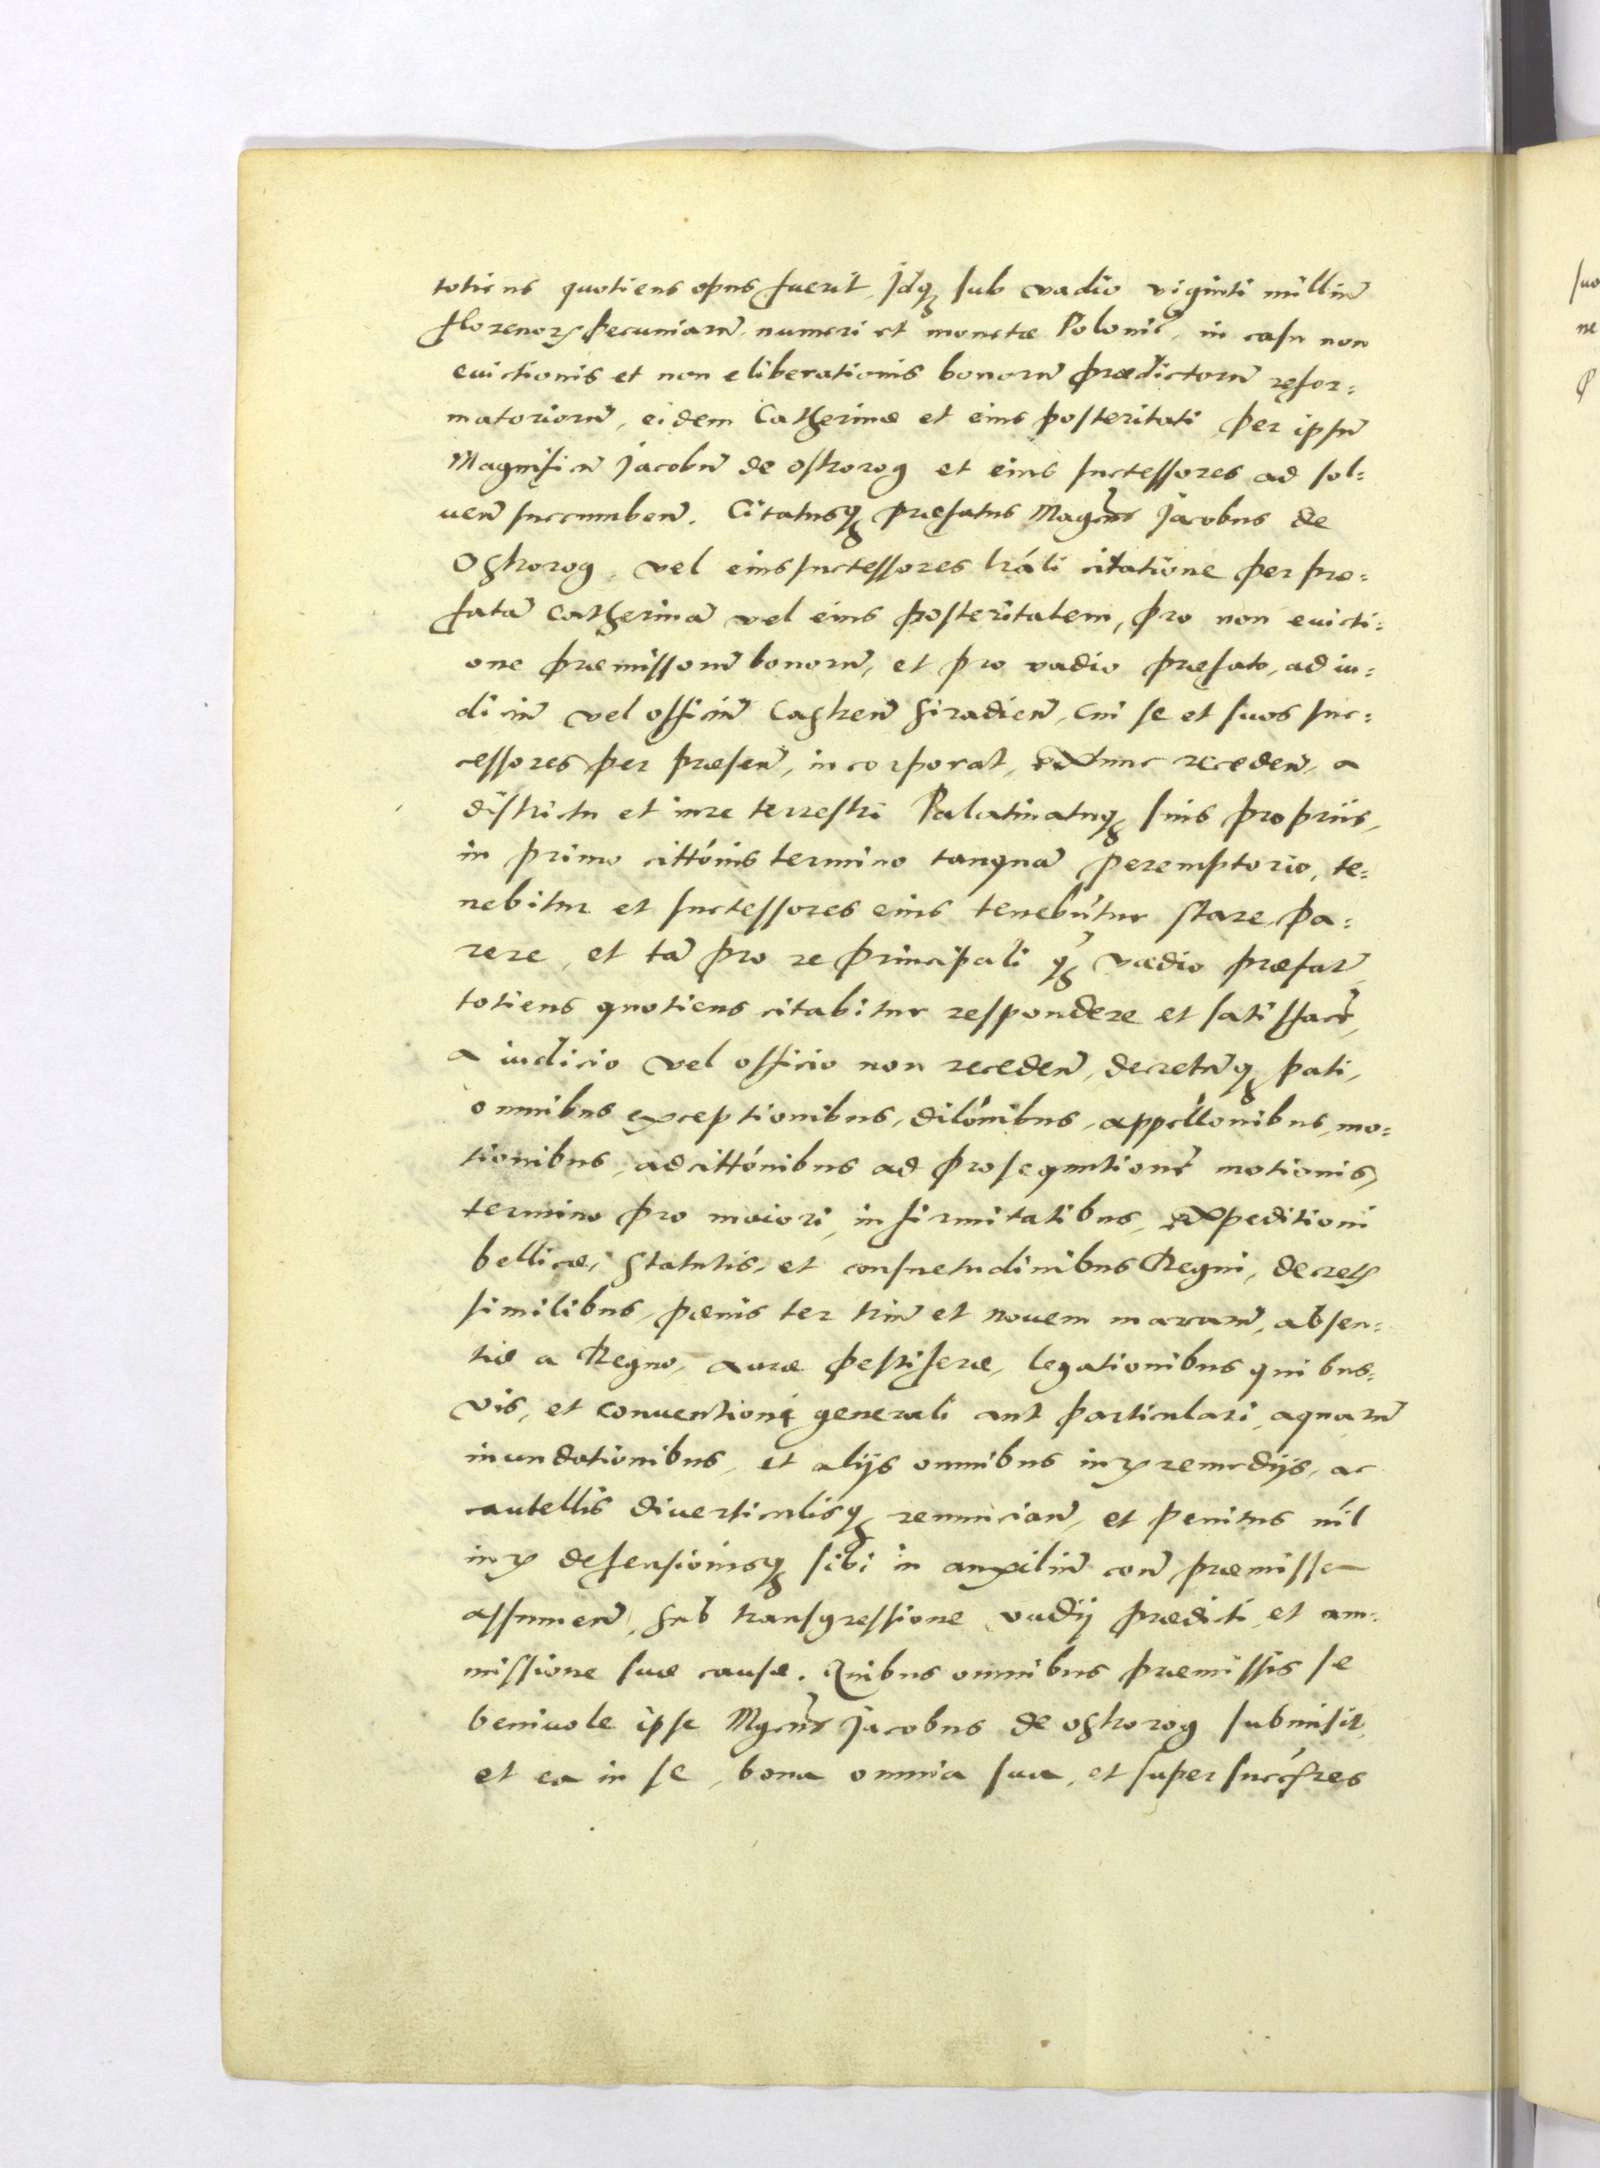 totiens quotiens opus fuerit, Idq₃ sub vadio viginti milliū
florenoꝝ pecuniarū, numeri et monetæ Polonic̄, in casu non
euictionis et non eliberationis bonorū prædictorū refor:
matoriorū, eidem Catherinæ et eius posteritati per ipsū
Magnificū Jacobū de ostrorog et eius successores ad sol:
uen̄ succumben̄. Citatusq₃ præfatus Magcus Jacobus de
Ostrorog, vel eius successores lrāli citatione per præ:
fatā Catherinā vel eius posteritatem, pro non euicti:
one præmissorū bonorū, et pro vadio præfato, ad iu:
diciū vel officiū Castren̄ Siradien̄, cui se et suos suc:
cessores per præsen̄, incorporat, extunc receden̄, a
districtu et iure terrestri Palatinatuq₃ suis proprijs,
in primo cittōnis termino tanquā peremptorio, te:
nebitur et successores eius tenebūtur stare, pa:
rere, et tā pro re principali q₃ vadio præfat̄
totiens quotiens citabitur respondere et satisfacr̄,
a iudicio vel officio non receden̄, decretūq₃ pati,
omnibus exceptionibus, dilōnibus, appellōnibus, mo:
tionibus, adcittōnibus ad prosequutionē motionis,
termino pro maiori, infirmitatibus, expeditioni
bellicæ, Statutis, et consuetudinibus Regni, decretꝭ
similibus, pænis ter triū et nouem marcarū, absen:
tiæ a Regno, auræ pestiferæ, legationibus quibus:
vis, et conuentione generali aut particulari, aquarū
inundationibus, et alijs omnibus iurꝭ remedijs, ac
cautellis diuerticulisq₃ renuncian̄, et penitus nīl
iurꝭ defensionisq₃ sibi in auxiliū con̄ præmissa
assumen̄, sub transgressione vadij prædicti et am:
missione suæ causæ. Quibus omnibus præmissis se
beniuole ipse Mgcus Jacobus de ostrorog submisit,
et ea in se, bona omnia sua, et super succēsres